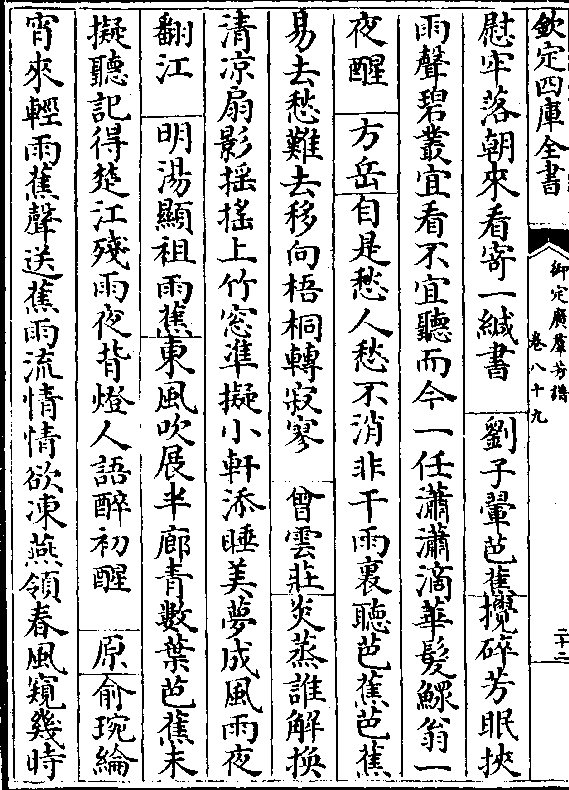 欽定四庫全書
御定廣羣芳譜
卷八十九
二十二
慰牢落朝來看寄一緘書 劉子翬芭蕉攪碎芳眠挾
雨聲碧叢宜看不宜聽而今一任瀟瀟滴華髮鰥翁一
夜醒 方岳自是愁人愁不消非干雨裏聽芭蕉芭蕉
易去愁難去移向梧桐轉寂寥 曾雲莊炎蒸誰解換
清凉扇影揺搖上竹窓準擬小軒添睡美夢成風雨夜
翻江 明湯顯祖雨蕉東風吹展半廊青數葉芭蕉未
擬聽記得楚江殘雨夜背燈人語醉初醒 原俞琬綸
宵來輕雨蕉聲送蕉雨流情情欲凍燕領春風窺幾時